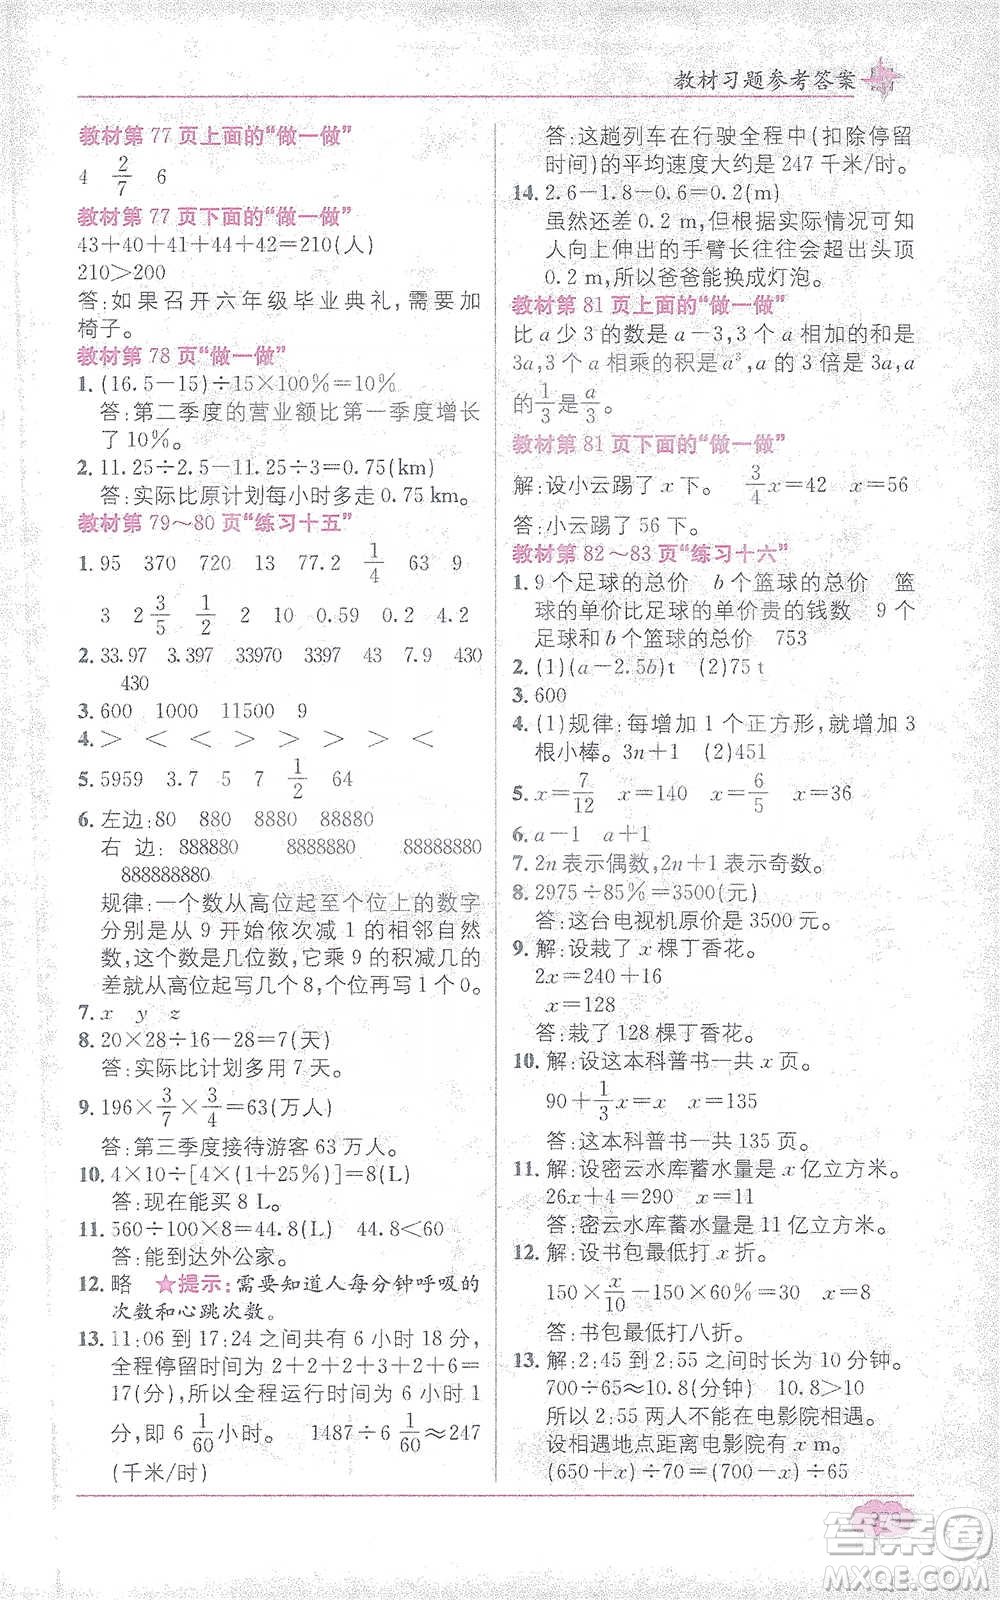 教材习题参考答案
教材第 77 页上面的“做一做”
4 2/7 6
教材第 77 页下面的“做一做”
43+40+41+44+42=210(人)
210>200
答:如果召开六年级毕业典礼,需要加
椅子。
教材第 78 页“做一做”
1. (16.5-15)÷15×100%=10%
答:第二季度的营业额比第一季度增长
了 10%。
2. 11.25÷2.5-11.25÷3=0.75(km)
答:实际比原计划每小时多走 0.75 km。
教材第 79~80 页“练习十五”
1. 95 370 720 13 77.2 1/4 63 9
3 2 3/5 1/2 2 10 0.59 0.2 4.2
2. 33.97 3.397 33970 3397 43 7.9 430
430
3. 600 1000 11500 9
4. > < > > > > > <
5. 5959 3.7 5 7 1/2 64
6. 左边:80 880 8880 88880
右边:888880 8888880 88888880
888888880
规律:一个数从高位起至个位上的数字
分别是从 9 开始依次减 1 的相邻自然
数,这个数是几位数,它乘 9 的积减几的
差就从高位起写几个 8,个位再写 1 个 0。
7. x y z
8. 20×28÷16-28=7(天)
答:实际比计划多用 7 天。
9. 196×3/7×3/4=63(万人)
答:第三季度接待游客 63 万人。
10. 4×10÷[4×(1+25%)]=8(L)
答:现在能买 8 L。
11. 560÷100×8=44.8(L) 44.8<60
答:能到达外公家。
12. 略 ★提示:需要知道人每分钟呼吸的
次数和心跳次数。
13. 11:06 到 17:24 之间共有 6 小时 18 分,
全程停留时间为 2+2+2+3+2+6=
17(分),所以全程运行时间为 6 小时 1
分,即 6 1/60 小时。 1487÷6 1/60≈247
(千米/时)
答:这趟列车在行驶全程中(扣除停留
时间)的平均速度大约是 247 千米/时。
14. 2.6-1.8-0.6=0.2(m)
虽然还差 0.2 m,但根据实际情况可知
人向上伸出的手臂长往往会超出头顶
0.2 m,所以爸爸能换成灯泡。
教材第 81 页上面的“做一做”
比 a 少 3 的数是 a-3,3 个 a 相加的和是
3a,3 个 a 相乘的积是 a³,a 的 3 倍是 3a,a
的 1/3 是 a/3。
教材第 81 页下面的“做一做”
解:设小云踢了 x 下。 3/4x=42 x=56
答:小云踢了 56 下。
教材第 82~83 页“练习十六”
1. 9 个足球的总价 b 个篮球的总价 篮
球的单价比足球的单价贵的钱数 9 个
足球和 b 个篮球的总价 753
2. (1)(a-2.5b)t (2)75 t
3. 600
4. (1)规律:每增加 1 个正方形,就增加 3
根小棒。3n+1 (2)451
5. x=7/12 x=16 x=6/5 x=36
6. a-1 a+1
7. 2n 表示偶数,2n+1 表示奇数。
8. 2975÷85%=3500(元)
答:这台电视机原价是 3500 元。
9. 解:设栽了 x 棵丁香花。
2x=240+16
x=128
答:栽了 128 棵丁香花。
10. 解:设这本科普书一共 x 页。
90+1/3x=x x=135
答:这本科普书一共 135 页。
11. 解:设密云水库蓄水量是 x 亿立方米。
26x+4=290 x=11
答:密云水库蓄水量是 11 亿立方米。
12. 解:设书包最低打 x 折。
150×x/10-150×70%=15 x=8
答:书包最低打八折。
13. 解:2:45 到 2:55 之间时长为 10 分钟。
700÷65≈10.8 10.8>10
所以 2:55 两人不能在电影院相遇。
设相遇地点距离电影院有 x m。
(650+x)÷70=(700-x)÷65
答案圈
MXQE.COM